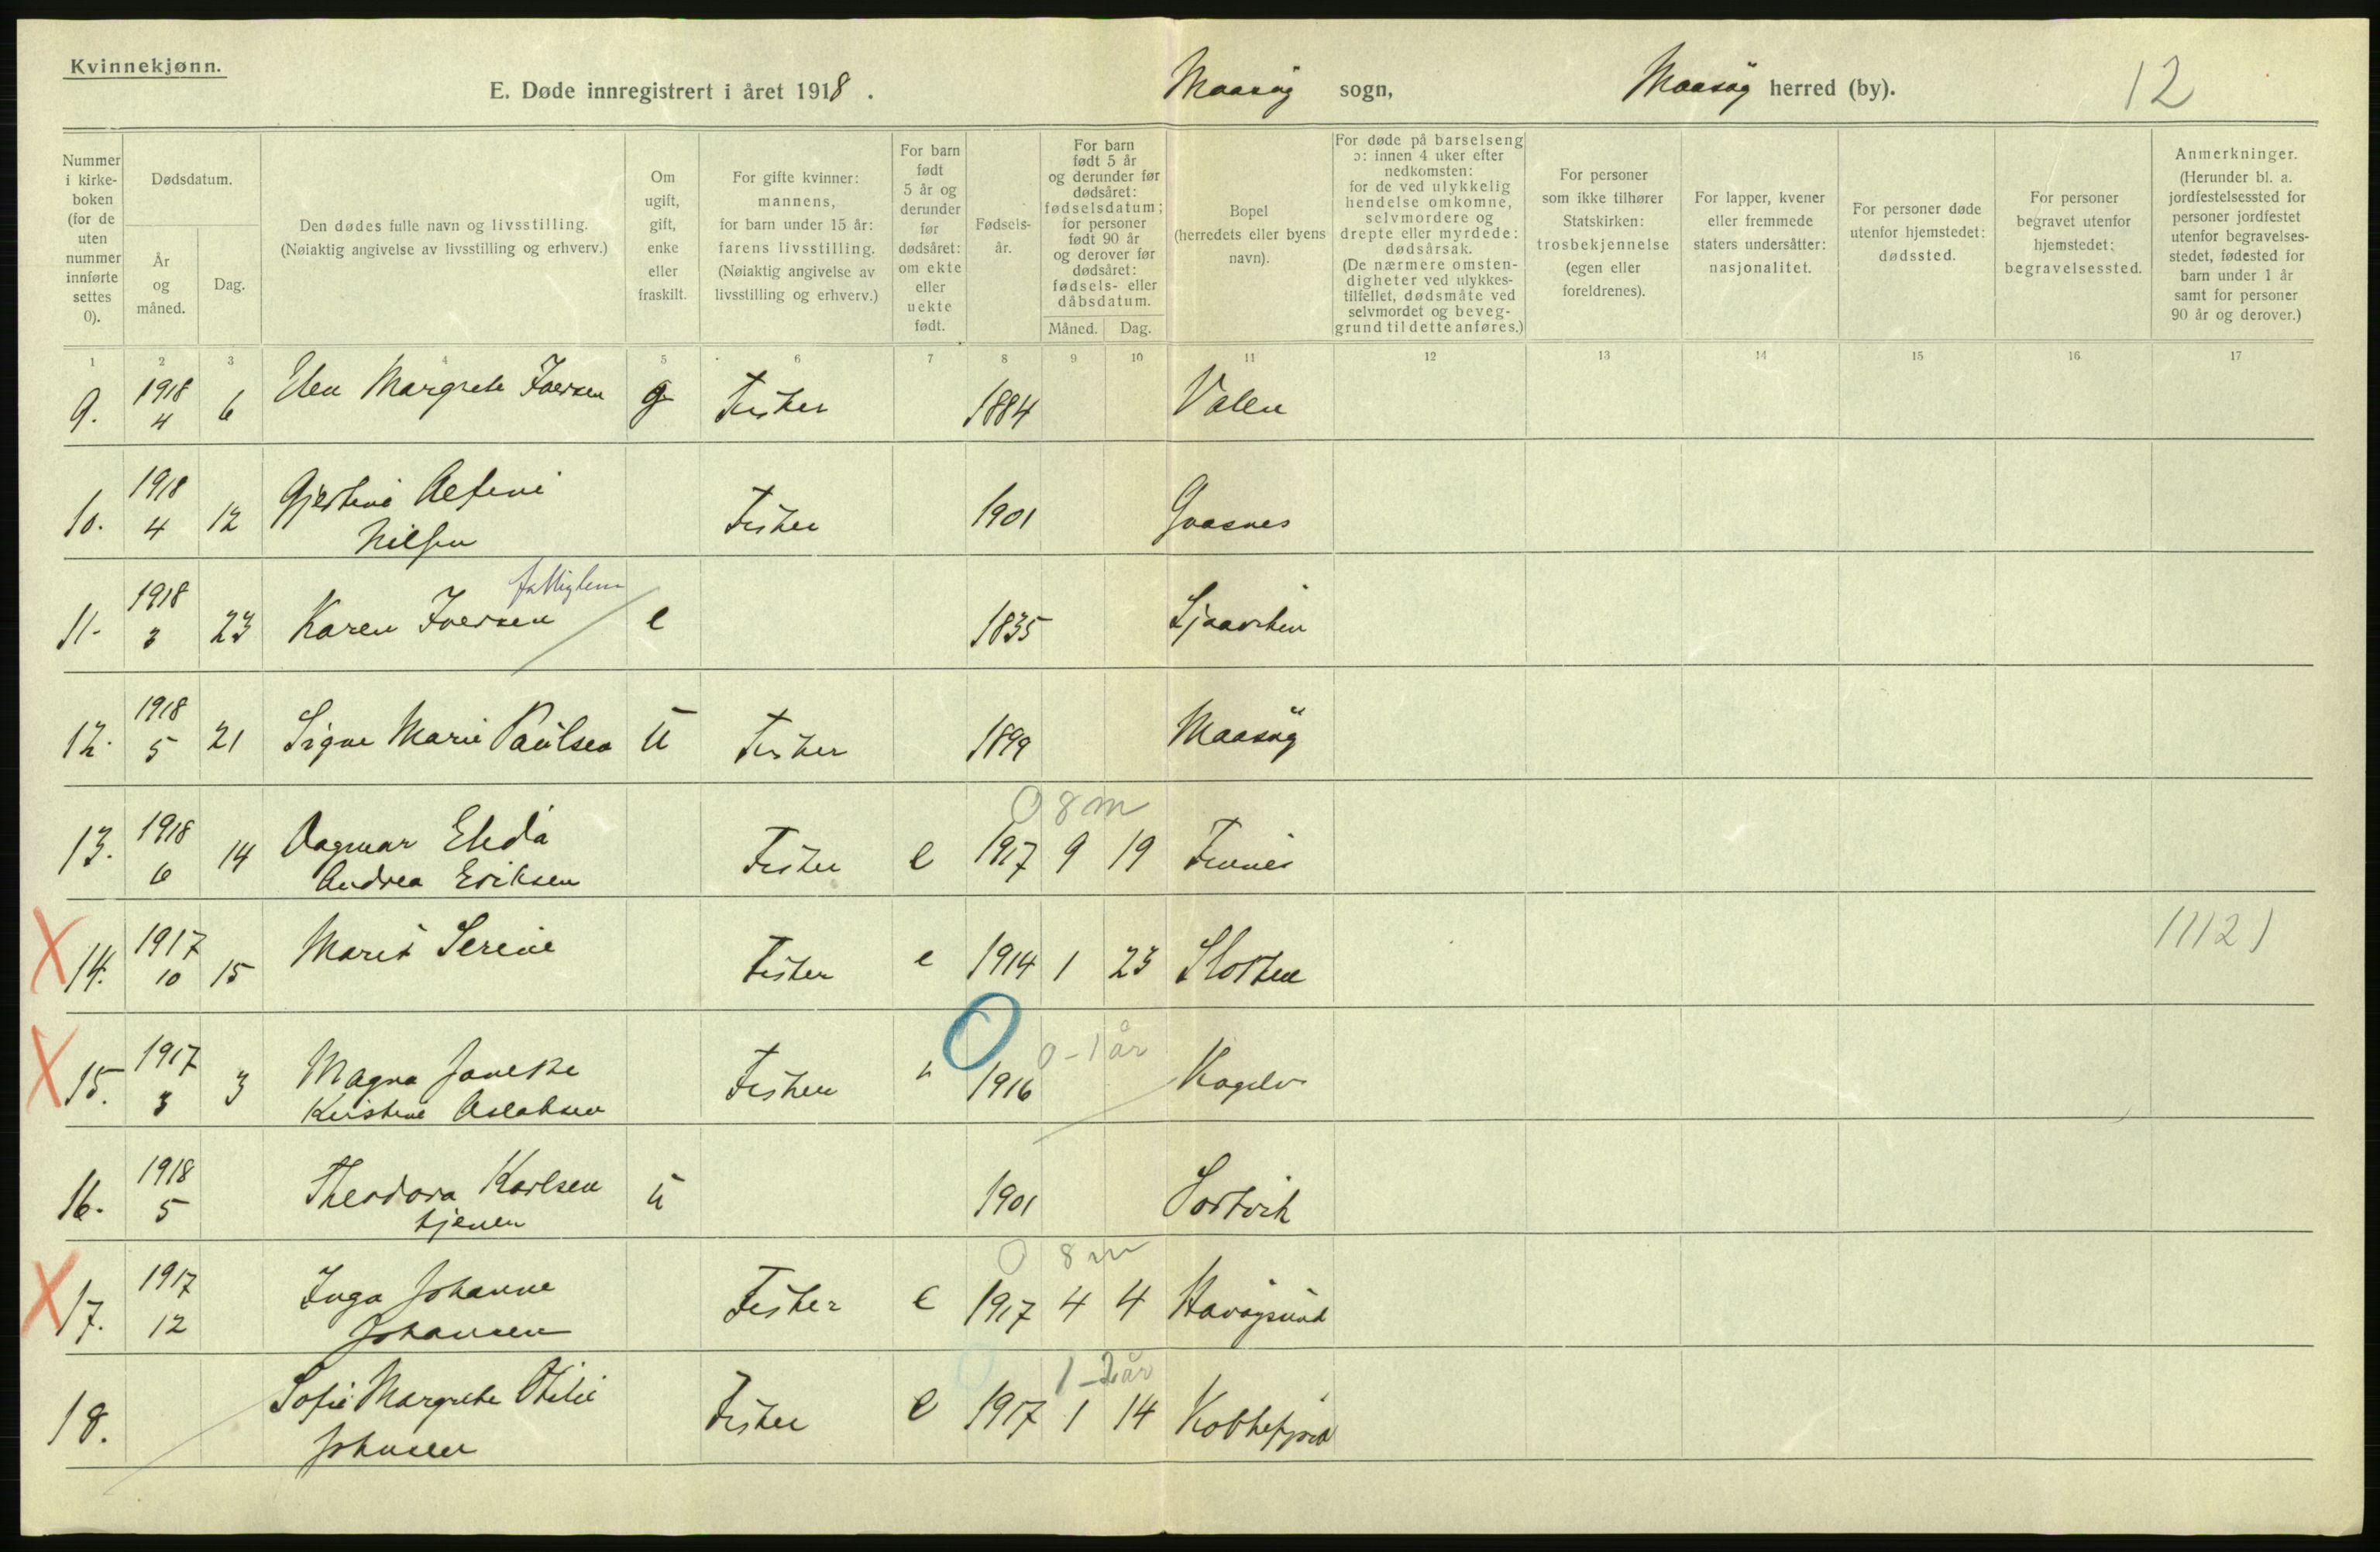 Kvinnekjønn.
E. Døde innregistrert i året 1918. Maasøy sogn, Maasøy herred (by). 12
Nummer i kirkeboken (for de uten nummer innførte settes 0).
Dødsdatum.
År og måned.
Dag.
Den dødes fulle navn og livsstilling.
(Nøiaktig angivelse av livsstilling og erhverv.)
Om ugift, gift, enke eller fraskilt.
For gifte kvinner: mannens, for barn under 15 år: farens livsstilling.
(Nøiaktig angivelse av livsstilling og erhverv.)
For barn født 5 år og derunder før dødsåret: om ekte eller uekte født.
Fødselsår.
For barn født 5 år og derunder før dødsåret: fødselsdatum; for personer født 90 år og derover før dødsåret: fødsels- eller dåbsdatum.
Måned. Dag.
Bopel (herredets eller byens navn).
For døde på barselseng ɔ: innen 4 uker efter nedkomsten: for de ved ulykkelig hendelse omkomne, selvmordere og drepte eller myrdede: dødsårsak.
(De nærmere omstendigheter ved ulykkestilfellet, dødsmåte ved selvmordet og beveggrund til dette anføres.)
For personer som ikke tilhører Statskirken: trosbekjennelse (egen eller foreldrenes).
For lapper, kvener eller fremmede staters undersåtter: nasjonalitet.
For personer døde utenfor hjemstedet: dødssted.
For personer begravet utenfor hjemstedet: begravelsessted.
Anmerkninger.
(Herunder bl. a. jordfestelsessted for personer jordfestet utenfor begravelsesstedet, fødested for barn under 1 år samt for personer 90 år og derover.)
1 2 3 4 5 6 7 8 9 10 11 12 13 14 15 16 17
9. 1918 4 6 Elen Margrete Iversen g Fisker 1884 Valen
10. 1918 4 12 Gjertine Nilsen Fisker 1901 Gaasnes
11. 1918 3 23 Karen Iversen fattiglem e 1835
12. 1918 5 21 Signe Marie Paulsen u Fisker 1899 Maasøy
0 8 m
13. 1918 6 14 Dagmar Elida Andrea Eriksen Fisker e 1917 9 19
X 14. 1917 10 15 Marit Serine Fisker e 1914 1 23 Slotten 11121
0 0-1 år
X 15. 1917 3 3 Magna Kristine Aslaksen Fisker " 1916
16. 1918 5 Theodora Karlsen tjener u 1901 Sortvik
0 8 m
X 17. 1917 12 Inga Johanne Johansen Fisker e 1917 4 4 Havøysund
0 1-2 år
18. Sofie Margrete Otelie Johnsen Fisker e 1917 1 14 Kobbefjord